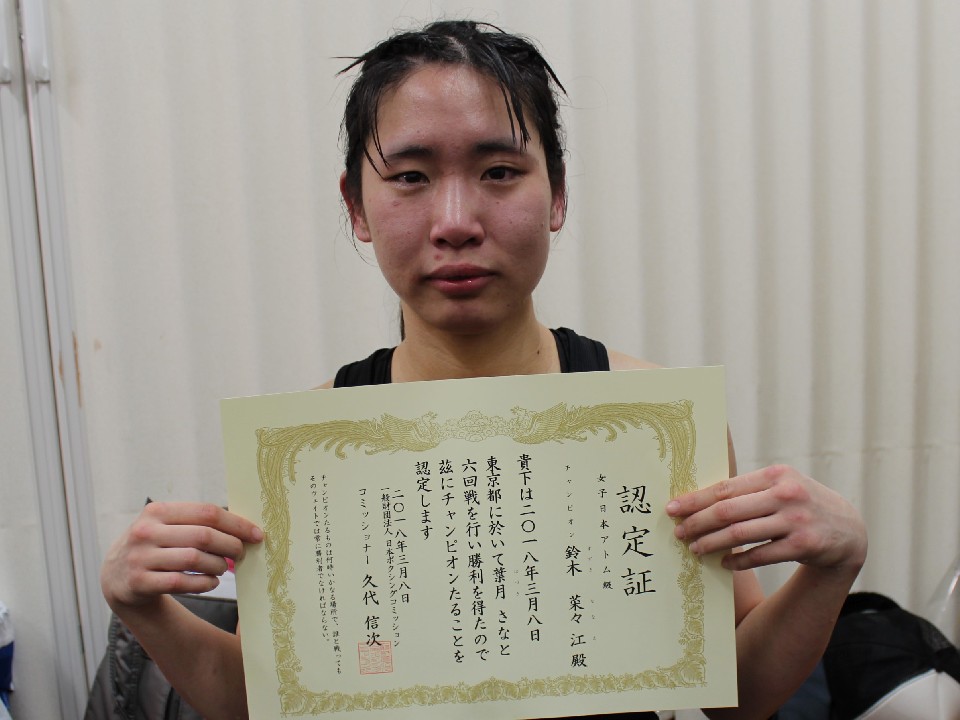 認定証
女子日本アトム級
チャンピオン 鈴木 菜々江 殿
貴下は二〇一八年三月八日
東京都に於いて葉月 さなと
六回戦を行い勝利を得たので
茲にチャンピオンたることを
認定します
二〇一八年三月八日
一般財団法人 日本ボクシングコミッション
コミッショナー 久代 信次
チャンピオンたるものは何時いかなる場所で、誰と戦っても
そのウェイトでは常に勝利者でなければならない。